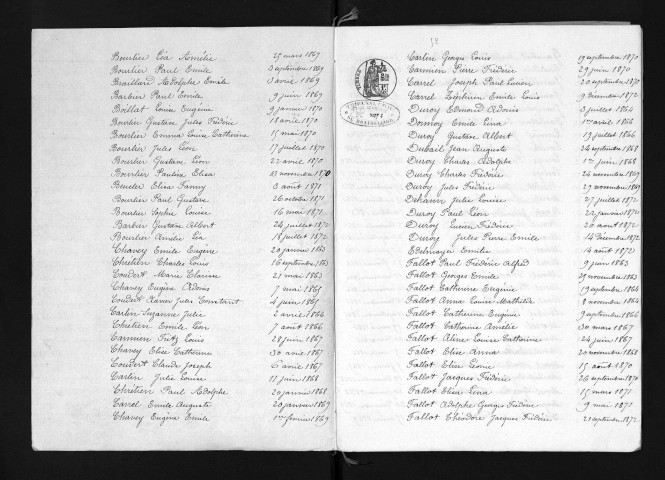 Bourlier Léa Amélie 25 mars 1869
Bourlier Paul Emile 3 septembre 1869
Brailland Adolphe Emile 3 avril 1869
Barbier Paul Emile 9 juin 1869
Boillat Louise Eugène 9 janvier 1870
Bourlier Gustave Jules Frédéric 18 avril 1870
Bourlier Emma Louise Catherine 15 mai 1870
Bourlier Jules Léon 17 juillet 1870
Bourlier Gustave Léon 22 avril 1870
Bourlier Pauline Elisa 13 novembre 1870
Beucler Elisa Fanny 3 août 1871
Bourlier Paul Gustave 26 octobre 1871
Bourlier Sophie Louise 16 mai 1871
Barbier Gustave Albert 24 juillet 1872
Bourlier Amélie Léa 18 juillet 1872
Chavey Emile Eugène 20 janvier 1863
Chrétien Charles Louis 16 septembre 1863
Coudert Marie Clarisse 21 mai 1863
Chavey Eugène Adonis 7 mai 1865
Coudert Xavier Jules Constant 4 juin 1865
Carlin Suzanne Julie 2 avril 1866
Chrétien Emile Léon 7 août 1866
Carmien Fritz Louis 28 juin 1867
Chavey Elise Catherine 30 avril 1867
Coudert Claude Joseph 6 avril 1867
Carlin Julie Louise 11 juin 1868
Chrétien Paul Adolphe 20 janvier 1868
Carrel Emile Auguste 28 janvier 1869
Chavey Eugène Emile 1er février 1869
Carlin Georges Louis 19 septembre 1870
Carmien Pierre Frédéric 29 juin 1870
Carrel Joseph Paul Lucien 20 septembre 1870
Carrel Zéphirin Emile Louis 9 décembre 1872
Duroy Edmond Adonis 3 juillet 1864
Dormoy Emile Léna 1er avril 1866
Duroy Gustave Albert 19 juillet 1866
Dubail Jean Auguste 26 septembre 1868
Duroy Charles Adolphe 1er juin 1868
Duroy Charles Frédéric 24 novembre 1869
Duroy Jules Frédéric 29 novembre 1869
Dehann Julie Louise 27 juillet 1872
Duroy Paul Léon 22 janvier 1872
Duroy Lucien Frédéric 20 août 1872
Duroy Jules Pierre Emile 14 décembre 1872
Edelmayer Emilie 14 août 1872
Fallot Paul Frédéric Alfred 9 juin 1863
Fallot Georges Emile 25 novembre 1863
Fallot Catherine Eugénie 19 septembre 1864
Fallot Anna Louise Mathilde 8 novembre 1864
Fallot Catherine Eugénie 9 septembre 1866
Fallot Catherine Amélie 30 mars 1867
Fallot Aline Louise Catherine 24 juin 1867
Fallot Elise Anna 20 novembre 1868
Fallot Elise Léonie 15 août 1870
Fallot Jacques Frédéric 26 septembre 1870
Fallot Elisa Léna 15 mars 1871
Fallot Adolphe Georges Frédéric 9 mai 1871
Fallot Théodore Jacques Frédéric 21 septembre 1872